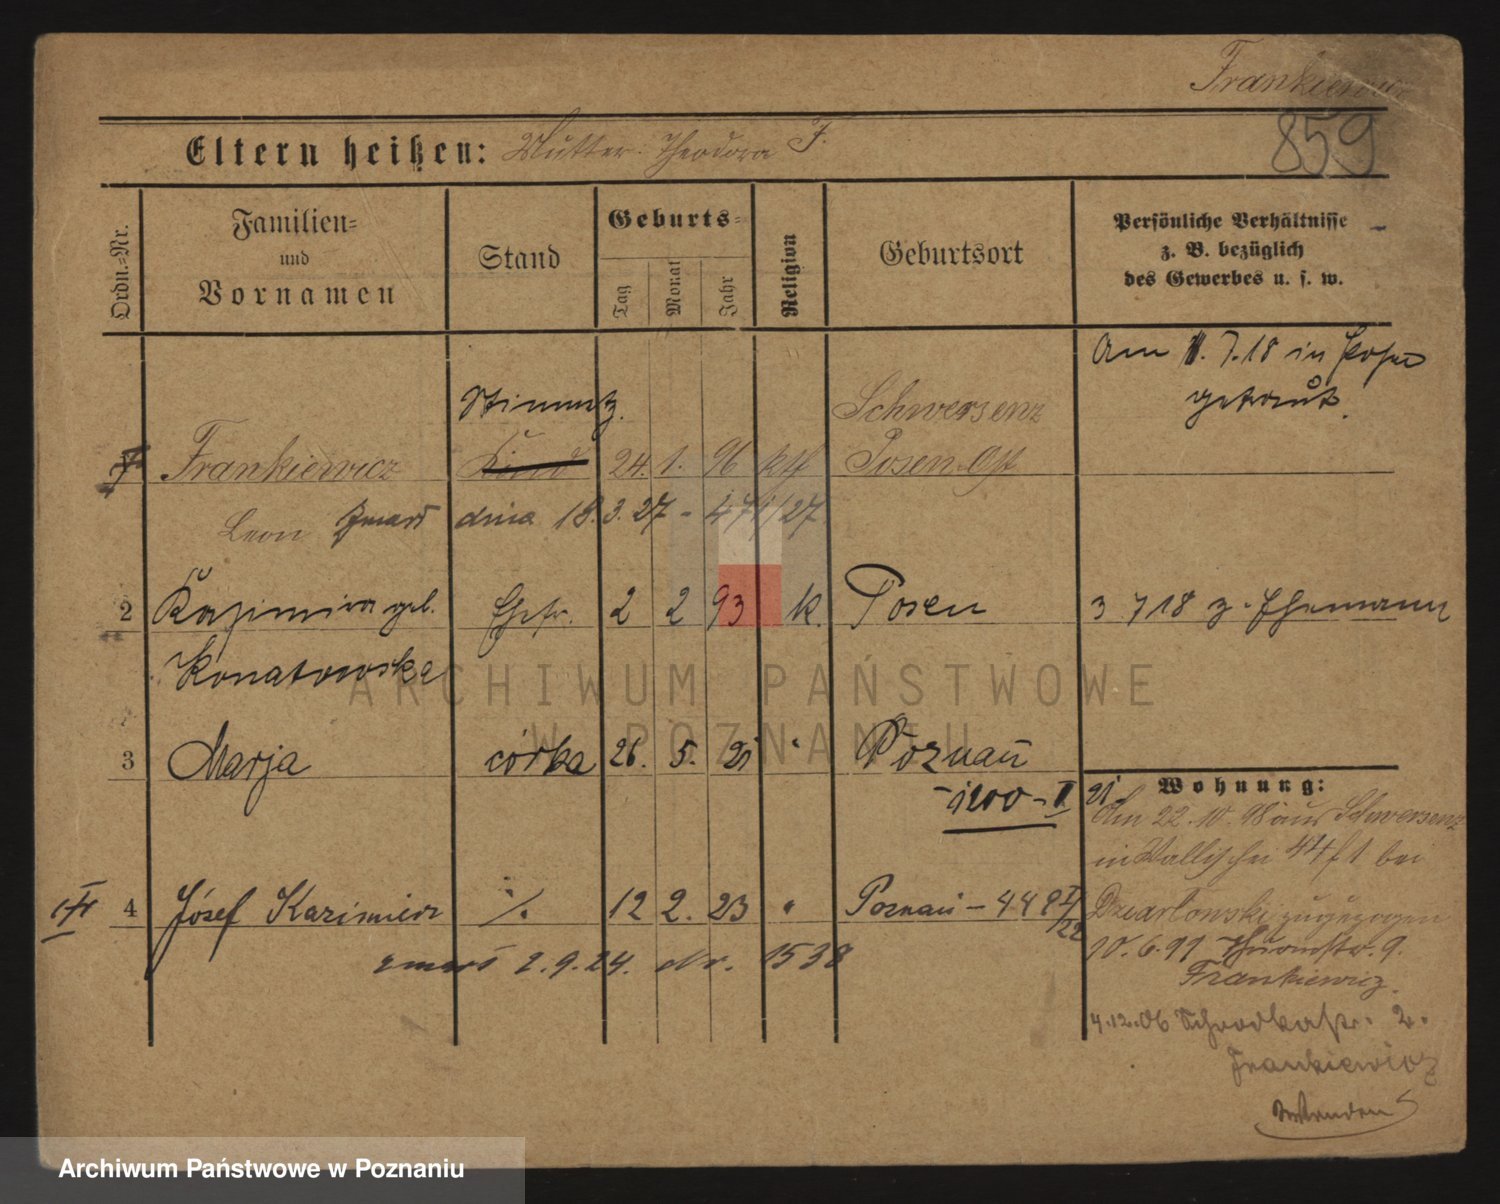 Frankiewicz
859
Eltern heißen: Mutter: Theodora F.
Ordn.-Nr.
Familien-
und
Vornamen
Stand
Geburts-
Tag
Monat
Jahr
Religion
Geburtsort
Persönliche Verhältnisse
z. B. bezüglich
des Gewerbes u. s. w.
Am 1. 7. 18 in Posen
getraut.
Schwersenz
Frankiewicz Kind 24. 1. 96 kth Posen Ost
Leon zmarł dnia 18. 3. 27 - 471/27
2 Kazimira geb. Ehefr. 2 2 93 k. Posen 3 7 18 z. Ehemann
Konatowska
3 Marja córka 26. 5. 21 " Poznań
Wohnung:
-1200-II 21
Am 22. 10. 98 aus Schwersenz
in Wallischei 44 bei
4 Józef Kazimierz ./. 12 2. 23 " Poznań - 449 I/22
zugezogen
zmarł 2. 9. 24. Nr. 1538
Thurmstr. 9.
Frankiewicz.
4. 12. 06 Schrodkastr. 2.
Frankiewicz
Wenden
ARCHIWUM PAŃSTWOWE
W POZNANIU
Archiwum Państwowe w Poznaniu